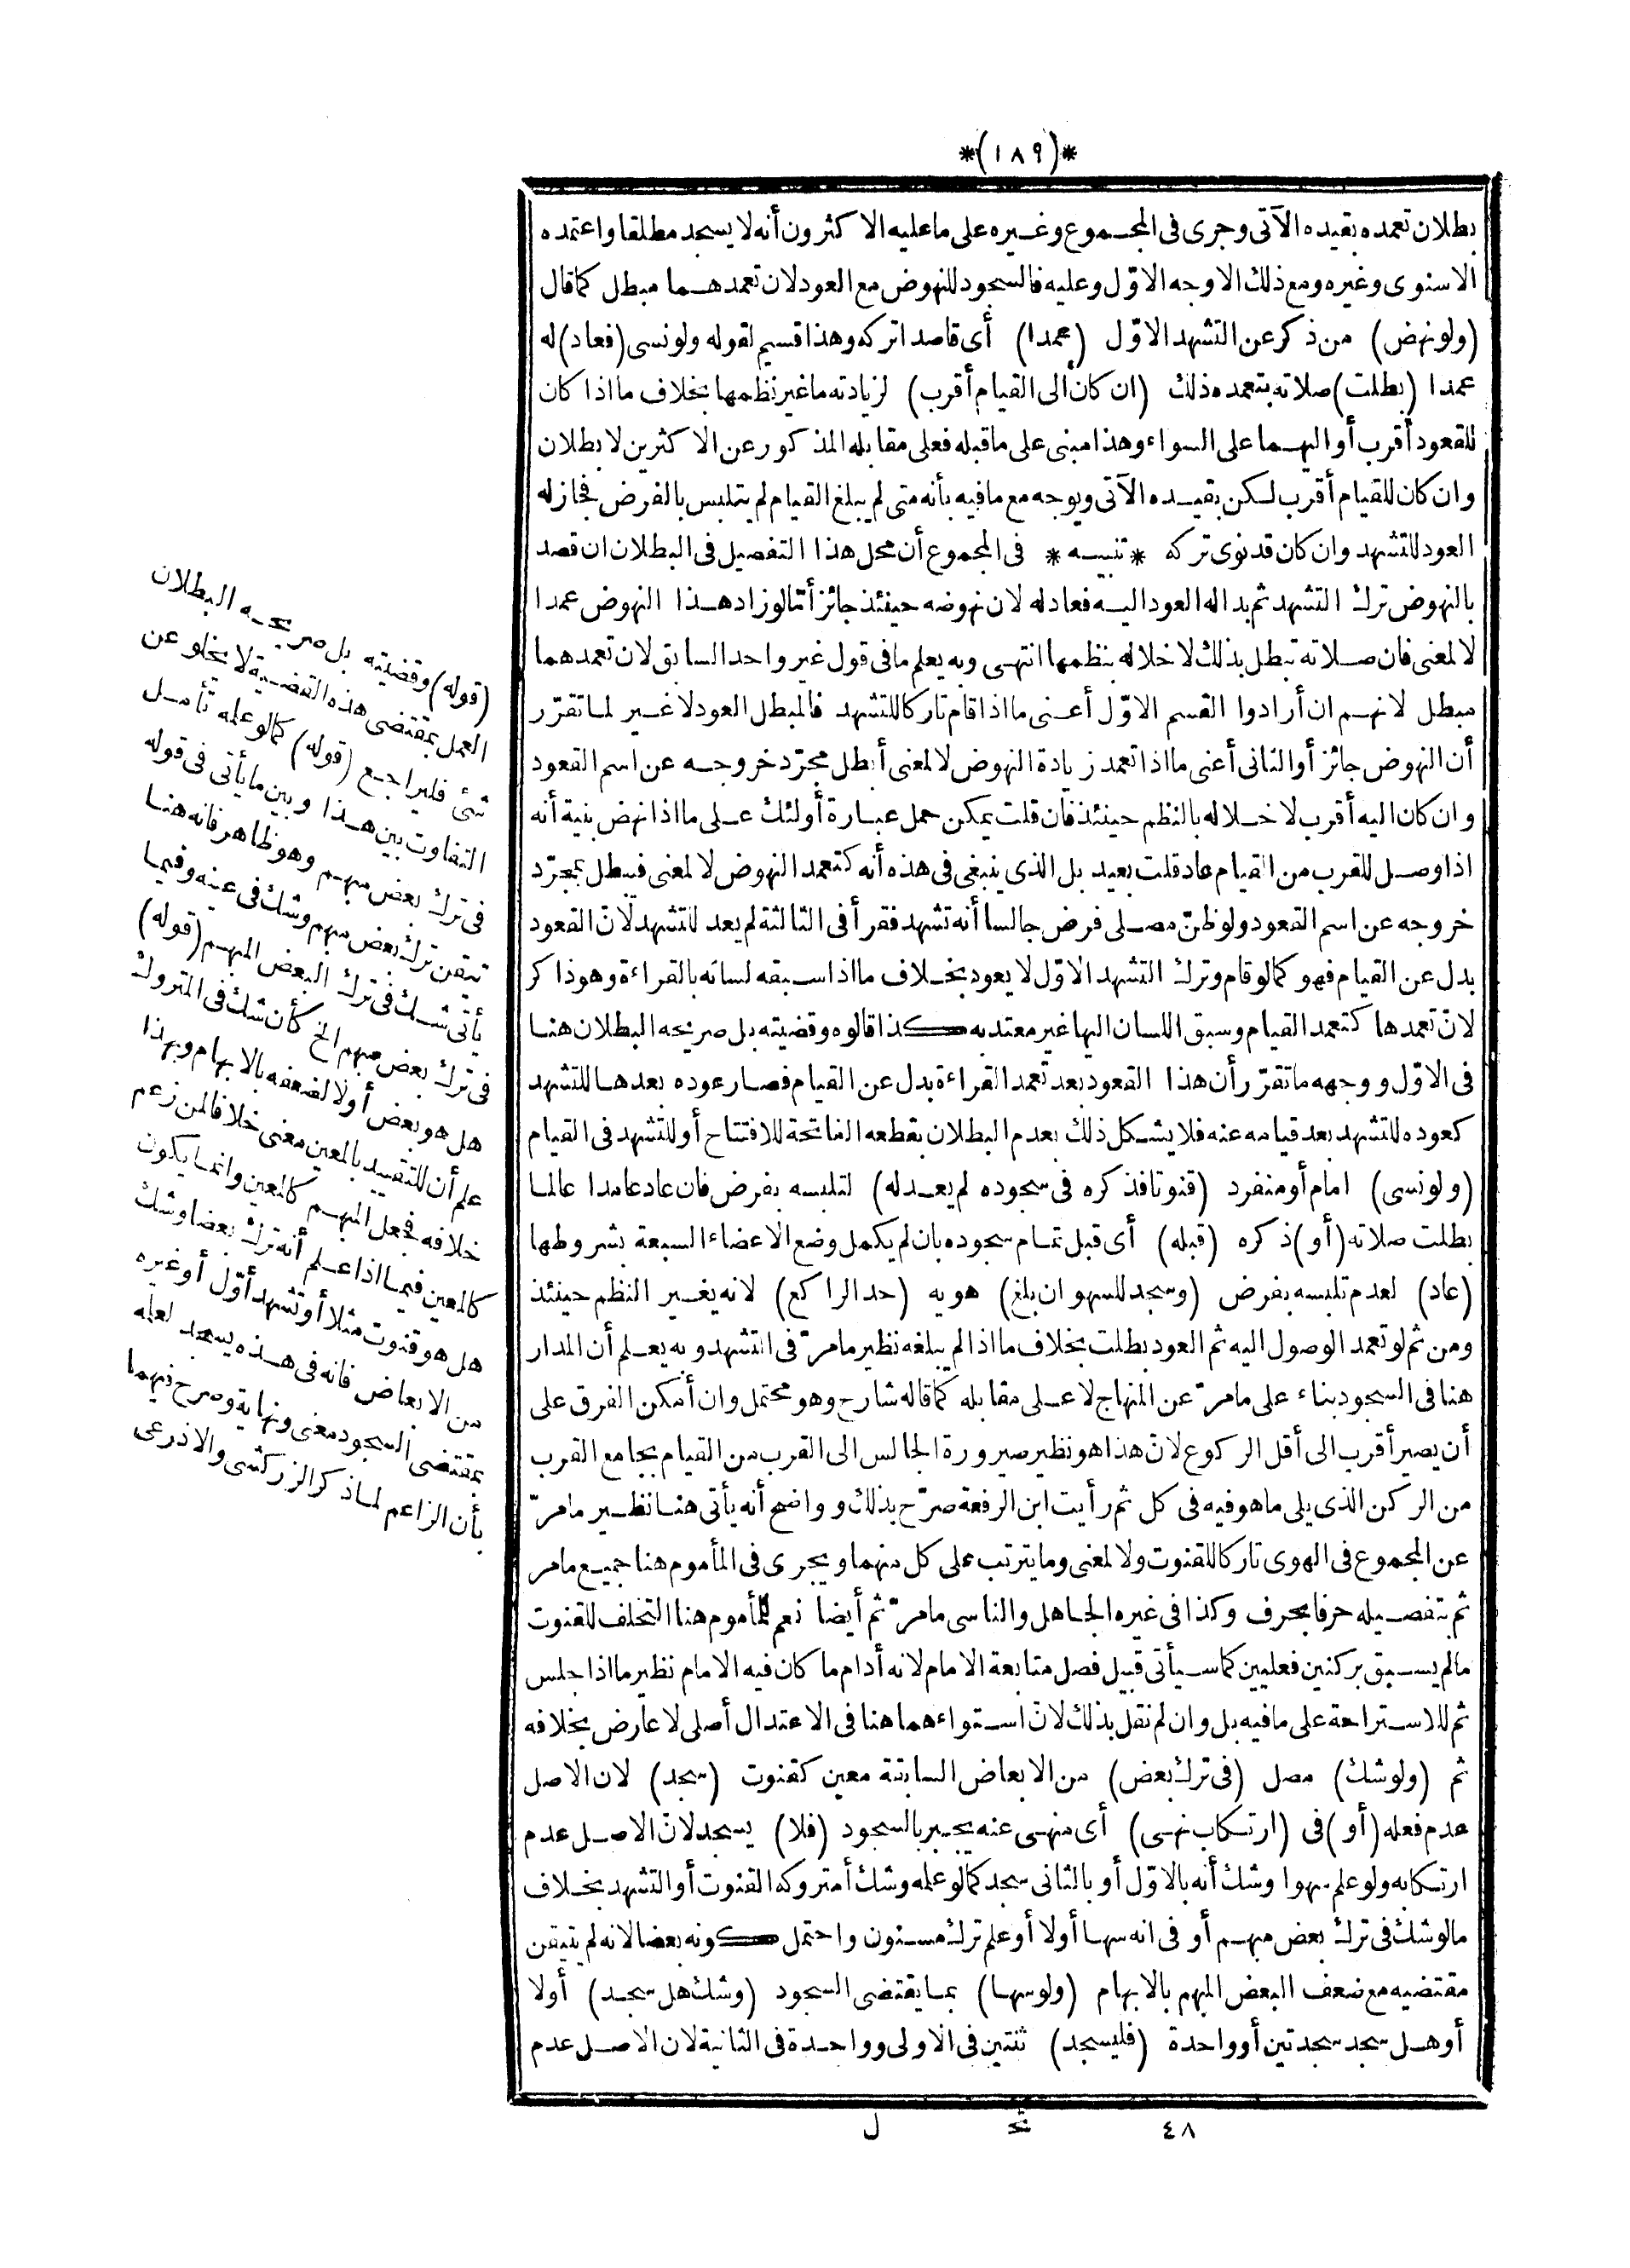 *(١٨٩)*
بطلان تعمده بقيده الآتى وجرى فى المجموع وغيره على ما عليه الاكثرون أنه لا يسجد مطلقا واعتمده
الاسنوى وغيره ومع ذلك الاوجه الاوّل وعليه فالسجود للنهوض مع العود لان تعمدهما مبطل كما قال
(ولو نهض) من ذكر عن التشهد الاوّل (عمدا) أى قاصدا تركه وهذا قسيم لقوله ولو نسى (فعاد) له
عمدا (بطلت) صلاته بتعمده ذلك (ان كان الى القيام أقرب) لزيادته ما غير نظمها بخلاف ما اذا كان
للقعود أقرب أو اليهما على السواء وهذا مبنى على ما قبله فعلى مقابله المذكور عن الاكثرين لا بطلان
وان كان للقيام أقرب لكن بقيده الآتى ويوجه مع ما فيه بأنه متى لم يبلغ القيام لم يتلبس بالفرض فجاز له
العود للتشهد وان كان قد نوى تركه * تنبيه * فى المجموع أن محل هذا التفصيل فى البطلان ان قصد
بالنهوض ترك التشهد ثم بدا له العود اليه فعاد له لان نهوضه حينئذ جائز أمّا لو زاد هذا النهوض عمدا
لا لمعنى فان صلاته تبطل بذلك لاخلاله بنظمها انتهى وبه يعلم ما فى قول غير واحد السابق لان تعمدهما
مبطل لانهم ان أرادوا القسم الاوّل أعنى ما اذا قام تاركا للتشهد فالمبطل العود لا غير لما تقرّر
أن النهوض جائز أو الثانى أعنى ما اذا تعمد زيادة النهوض لا لمعنى أبطل مجرّد خروجه عن اسم القعود
وان كان اليه أقرب لاخلاله بالنظم حينئذ فان قلت يمكن حمل عبارة أولئك على ما اذا نهض بنية أنه
اذا وصل للقرب من القيام عاد قلت بعيد بل الذى ينبغى فى هذه أنه كتعمد النهوض لا لمعنى فيبطل بمجرّد
خروجه عن اسم القعود ولو ظنّ مصلى فرض جالسا أنه تشهد فقرأ فى الثالثة لم يعد للتشهد لانّ القعود
بدل عن القيام فهو كما لو قام وترك التشهد الاوّل لا يعود بخلاف ما اذا سبقه لسانه بالقراءة وهو ذاكر
لانّ تعمدها كتعمد القيام وسبق اللسان اليها غير معتد به كذا قالوه وقضيته بل صريحه البطلان هنا
فى الاوّل ووجهه ما تقرّر أن هذا القعود بعد تعمد القراءة بدل عن القيام فصار عوده بعدها للتشهد
كعوده للتشهد بعد قيامه عنه فلا يشكل ذلك بعدم البطلان بقطعه الفاتحة للافتتاح أو للتشهد فى القيام
(ولو نسى) امام أو منفرد (قنوتا فذكره فى سجوده لم يعد له) لتلبسه بفرض فان عاد عامدا عالما
بطلت صلاته (أو) ذكره (قبله) أى قبل تمام سجوده بان لم يكمل وضع الاعضاء السبعة بشروطها
(عاد) لعدم تلبسه بفرض (وسجد للسهو ان بلغ) هويه (حد الراكع) لانه يغير النظم حينئذ
ومن ثم لو تعمد الوصول اليه ثم العود بطلت بخلاف ما اذا لم يبلغه نظير ما مرّ فى التشهد وبه يعلم أن المدار
هنا فى السجود بناء على ما مرّ عن المنهاج لا على مقابله كما قاله شارح وهو محتمل وان أمكن الفرق على
أن يصير أقرب الى أقل الركوع لانّ هذا هو نظير صيرورة الجالس الى القرب من القيام بجامع القرب
من الركن الذى يلى ما هو فيه فى كل ثم رأيت ابن الرفعة صرّح بذلك وواضح أنه يأتى هنا نظير ما مرّ
عن المجموع فى الهوى تاركا للقنوت ولا لمعنى وما يترتب على كل منهما ويجرى فى المأموم هنا جميع ما مر
ثم بتفصيله حرفا بحرف وكذا فى غيره الجاهل والناسى ما مرّ ثم أيضا نعم للمأموم هنا التخلف للقنوت
ما لم يسبق بركنين فعليين كما سيأتى قبيل فصل متابعة الامام لانه أدام ما كان فيه الامام نظير ما اذا جلس
ثم للاستراحة على ما فيه بل وان لم نقل بذلك لانّ استواءهما هنا فى الاعتدال أصلى لا عارض بخلافه
ثم (ولو شك) مصل (فى ترك بعض) من الابعاض السابقة معين كقنوت (سجد) لان الاصل
عدم فعله (أو) فى (ارتكاب نهى) أى منهى عنه يجبر بالسجود (فلا) يسجد لانّ الاصل عدم
ارتكابه ولو علم سهوا وشك أنه بالاوّل أو بالثانى سجد كما لو علمه وشك أمتروكه القنوت أو التشهد بخلاف
ما لو شك فى ترك بعض مبهم أو فى انه سها أولا أو علم ترك مسنون واحتمل كونه بعضا لانه لم يتيقن
مقتضيه مع ضعف البعض المبهم بالابهام (ولو سها) بما يقتضى السجود (وشك هل سجد) أولا
أو هل سجد سجدتين أو واحدة (فليسجد) ثنتين فى الاولى وواحدة فى الثانية لان الاصل عدم
٤٨ تح ل
(قوله) وقضيته بل صريحه البطلان
العمل بمقتضى هذه القضية لا يخلو عن
شئ فليراجع (قوله) كما لو علمه تأمل
التفاوت بين هذا وبين ما يأتى فى قوله
فى ترك بعض مبهم وهو ظاهر فانه هنا
تيقن ترك بعض مبهم وشك فى عينه وفيما
يأتى شك فى ترك البعض المبهم (قوله)
فى ترك بعض مبهم الخ كأن شك فى المتروك
هل هو بعض أولا لضعفه بالابهام وبهذا
علم أن للتقييد بالمعين معنى خلافا لمن زعم
خلافه فجعل المبهم كالمعين وانما يكون
كالمعين فيما اذا علم أنه ترك بعضا وشك
هل هو قنوت مثلا أو تشهد أوّل أو غيره
من الابعاض فانه فى هذه يسجد لعلمه
بمقتضى السجود مغنى ونهاية وصرح فيهما
بأن الزاعم لما ذكر الزركشى والاذرعى